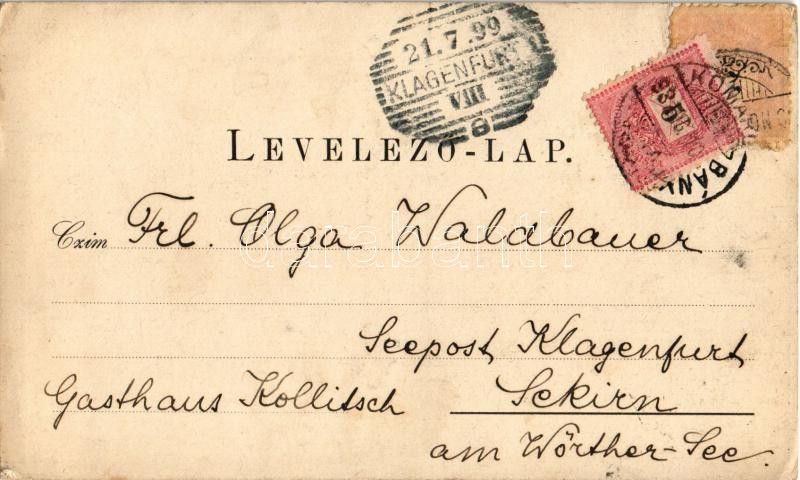 21.7.99
KLAGENFURT
VIII
LEVELEZŐ-LAP.
Czim Frl. Olga Waldbauer
Seepost Klagenfurt
Gasthaus Kollitsch Sekirn
am Wörther-See.
darabanth